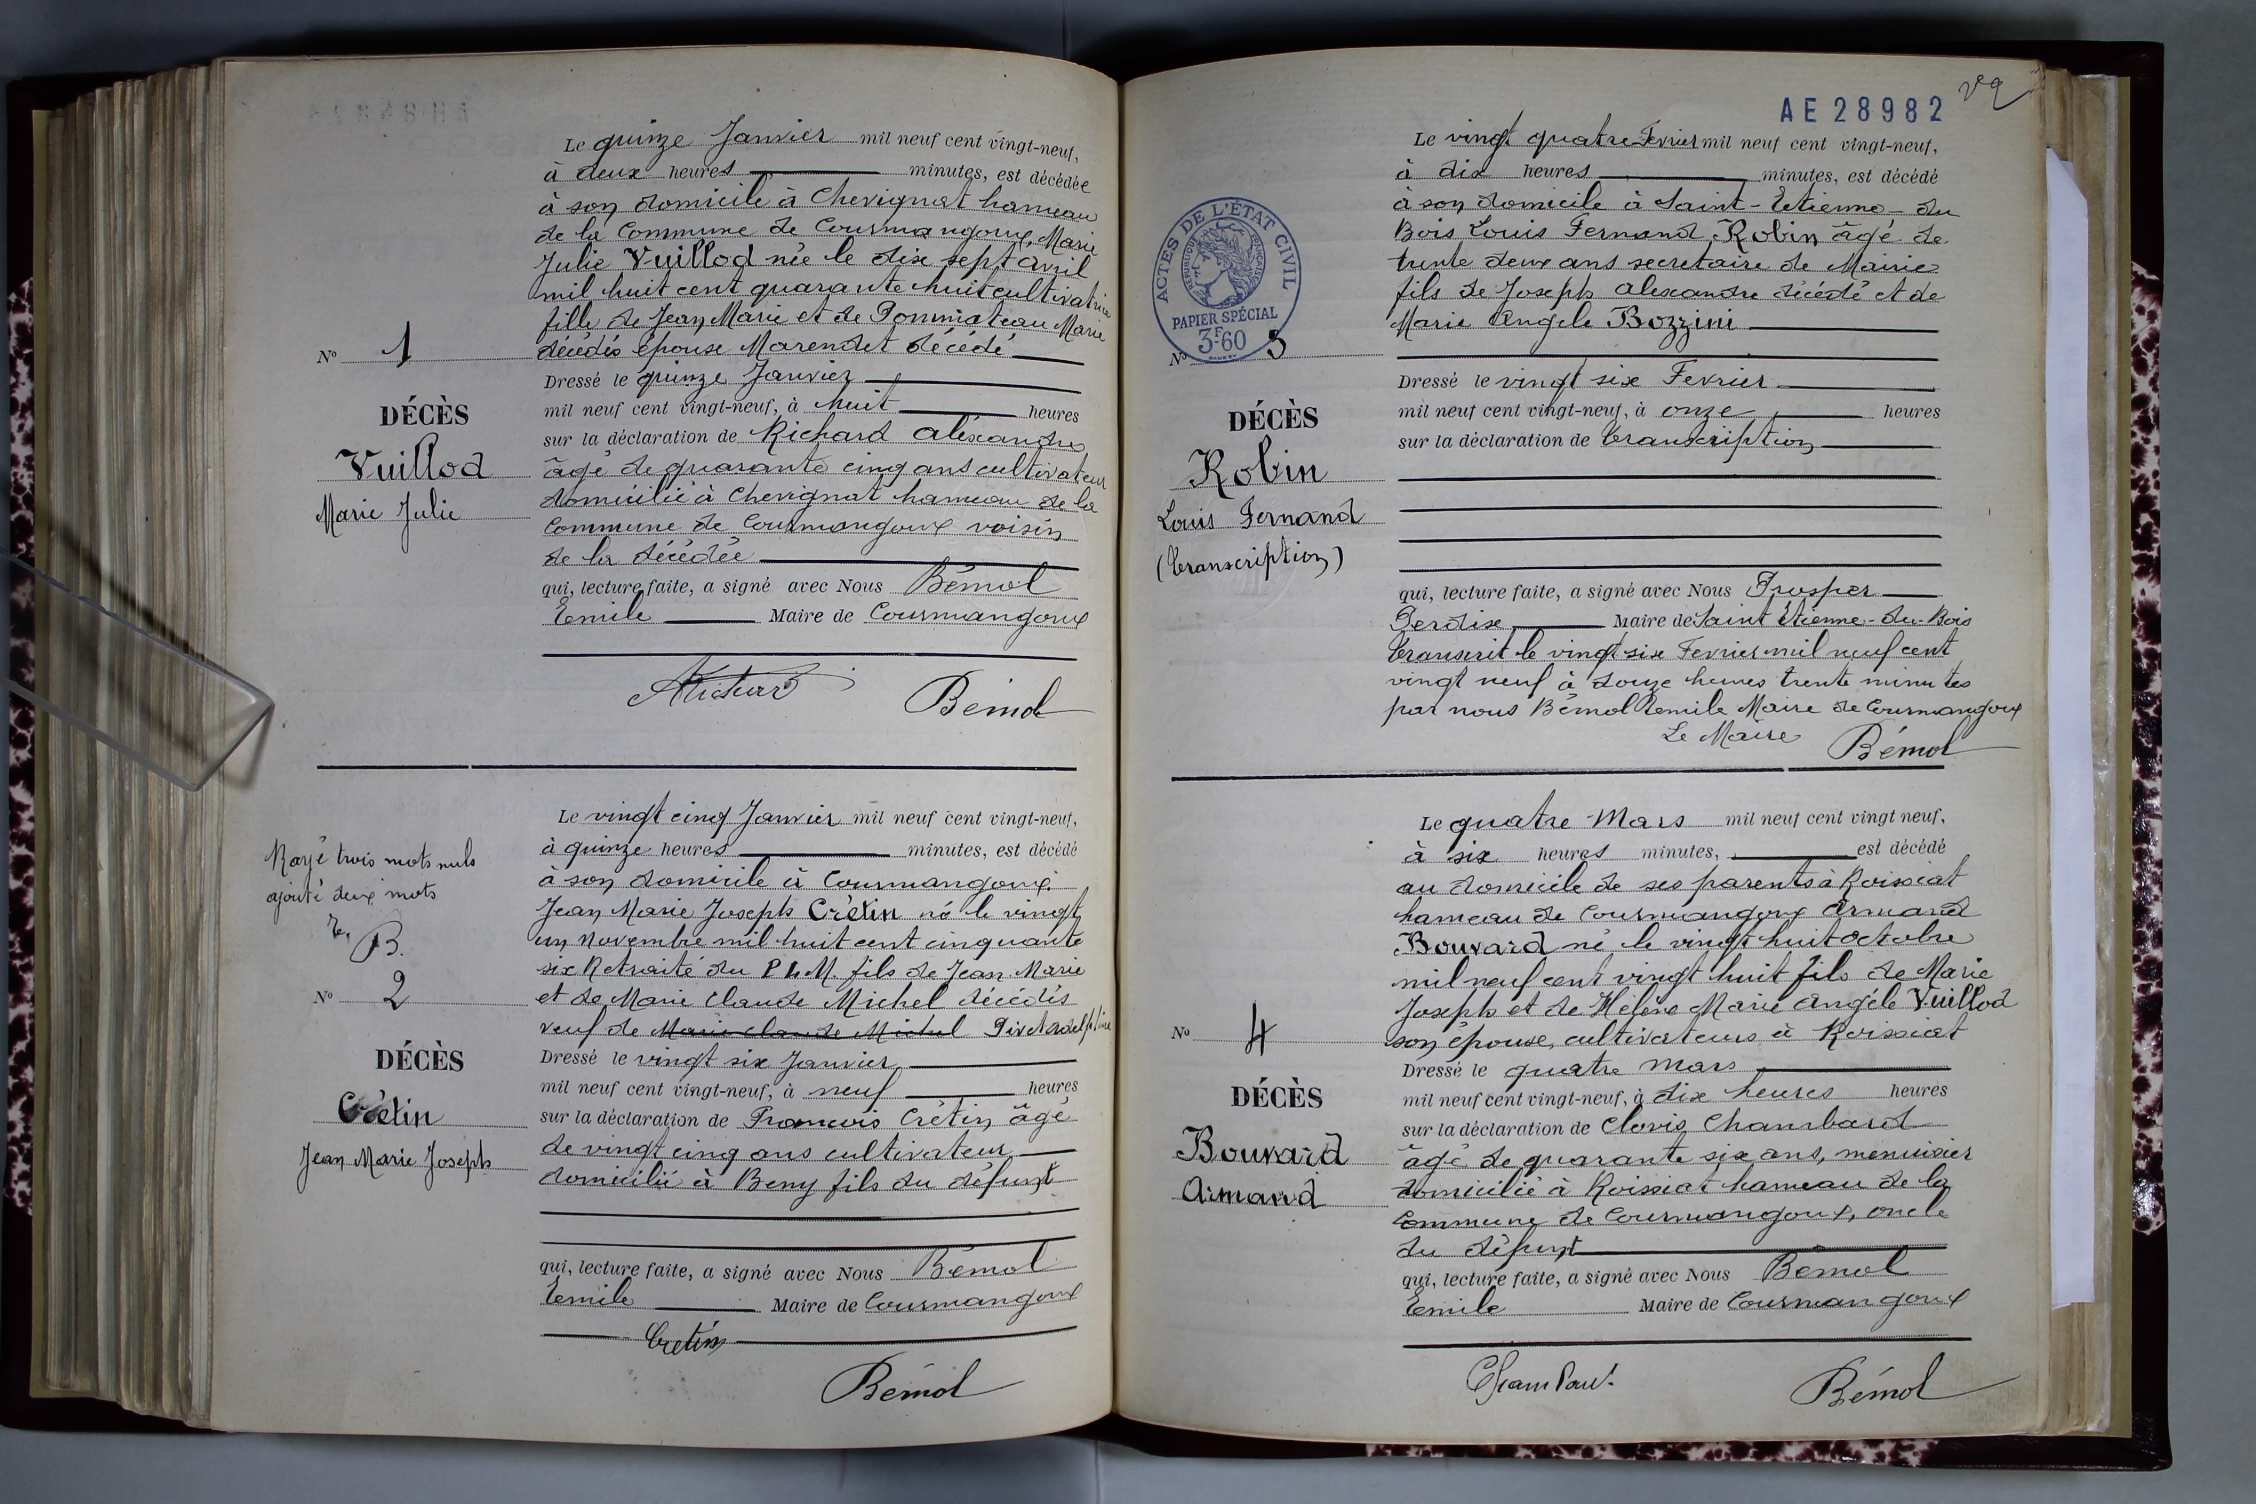 Le quinze Janvier mil neuf cent vingt-neuf,
à deux heures minutes, est décédée
à son domicile à Chevignat hameau
de la Commune de Courmangoux, Marie
Julie Vuillod née le dix sept avril
mil huit cent quarante huit cultivatrice
fille de Jean Marie et de Pommateau Marie
décédés épouse Marendet décédé
Nº 1
DÉCÈS
Vuillod
Marie Julie
Dressé le quinze Janvier
mil neuf cent vingt-neuf, à huit heures
sur la déclaration de Richard Alexandre
âgé de quarante cinq ans cultivateur
domicilié à Chevignat hameau de la
Commune de Courmangoux voisin
de la décédée
qui, lecture faite, a signé avec Nous Bémol
Emile Maire de Courmangoux
ARichard
Bémol
Rayé trois mots nuls
ajouté deux mots
E. B.
Le vingt cinq Janvier mil neuf cent vingt-neuf,
à quinze heures minutes, est décédé
à son domicile à Courmangoux
Jean Marie Joseph Crétin né le vingt
un Novembre mil huit cent cinquante
six Retraité du P.L.M. fils de Jean Marie
et de Marie Claude Michel décédés
veuf de Marie Claude Michel Pivet Adelphine
Nº 2
DÉCÈS
Crétin
Jean Marie Joseph
Dressé le vingt six Janvier
mil neuf cent vingt-neuf, à neuf heures
sur la déclaration de Francois Crétin âgé
de vingt cinq ans cultivateur
domicilié à Beny fils du défunt
qui, lecture faite, a signé avec Nous Bémol
Emile Maire de Courmangoux
Cretin
Bémol
AE 28982
ACTES DE L'ÉTAT CIVIL
RÉPUBLIQUE FRANÇAISE
PAPIER SPÉCIAL
3F60
Le vingt quatre Fevrier mil neuf cent vingt-neuf,
à dix heures minutes, est décédé
à son domicile à Saint-Etienne-du
Bois Louis Fernand Robin âgé de
trente deux ans secretaire de Mairie
fils de Joseph Alexandre décédé et de
Marie Angèle Bozzini
Nº 3
DÉCÈS
Robin
Louis Fernand
(Transcription)
Dressé le vingt six Fevrier
mil neuf cent vingt-neuf, à onze heures
sur la déclaration de Transcription
qui, lecture faite, a signé avec Nous Prosper
Perdix Maire de Saint Etienne-du-Bois
Transcrit le vingt six Fevrier mil neuf cent
vingt neuf à douze heures trente minutes
par nous Bémol Emile Maire de Courmangoux
Le Maire Bémol
Le quatre Mars mil neuf cent vingt neuf,
à six heures minutes, est décédé
au domicile de ses parents à Roissiat
hameau de Courmangoux Armand
Bouvard né le vingt huit octobre
mil neuf cent vingt huit fils de Marie
Joseph et de Hélène Marie Angèle Vuillod
son épouse, cultivateurs à Roissiat
Nº 4
DÉCÈS
Bouvard
Armand
Dressé le quatre Mars
mil neuf cent vingt-neuf, à dix heures heures
sur la déclaration de Clovis Chambard
âgé de quarante six ans, menuisier
domicilié à Roissiat hameau de la
Commune de Courmangoux, oncle
du défunt
qui, lecture faite, a signé avec Nous Bémol
Emile Maire de Courmangoux
Chambard
Bémol